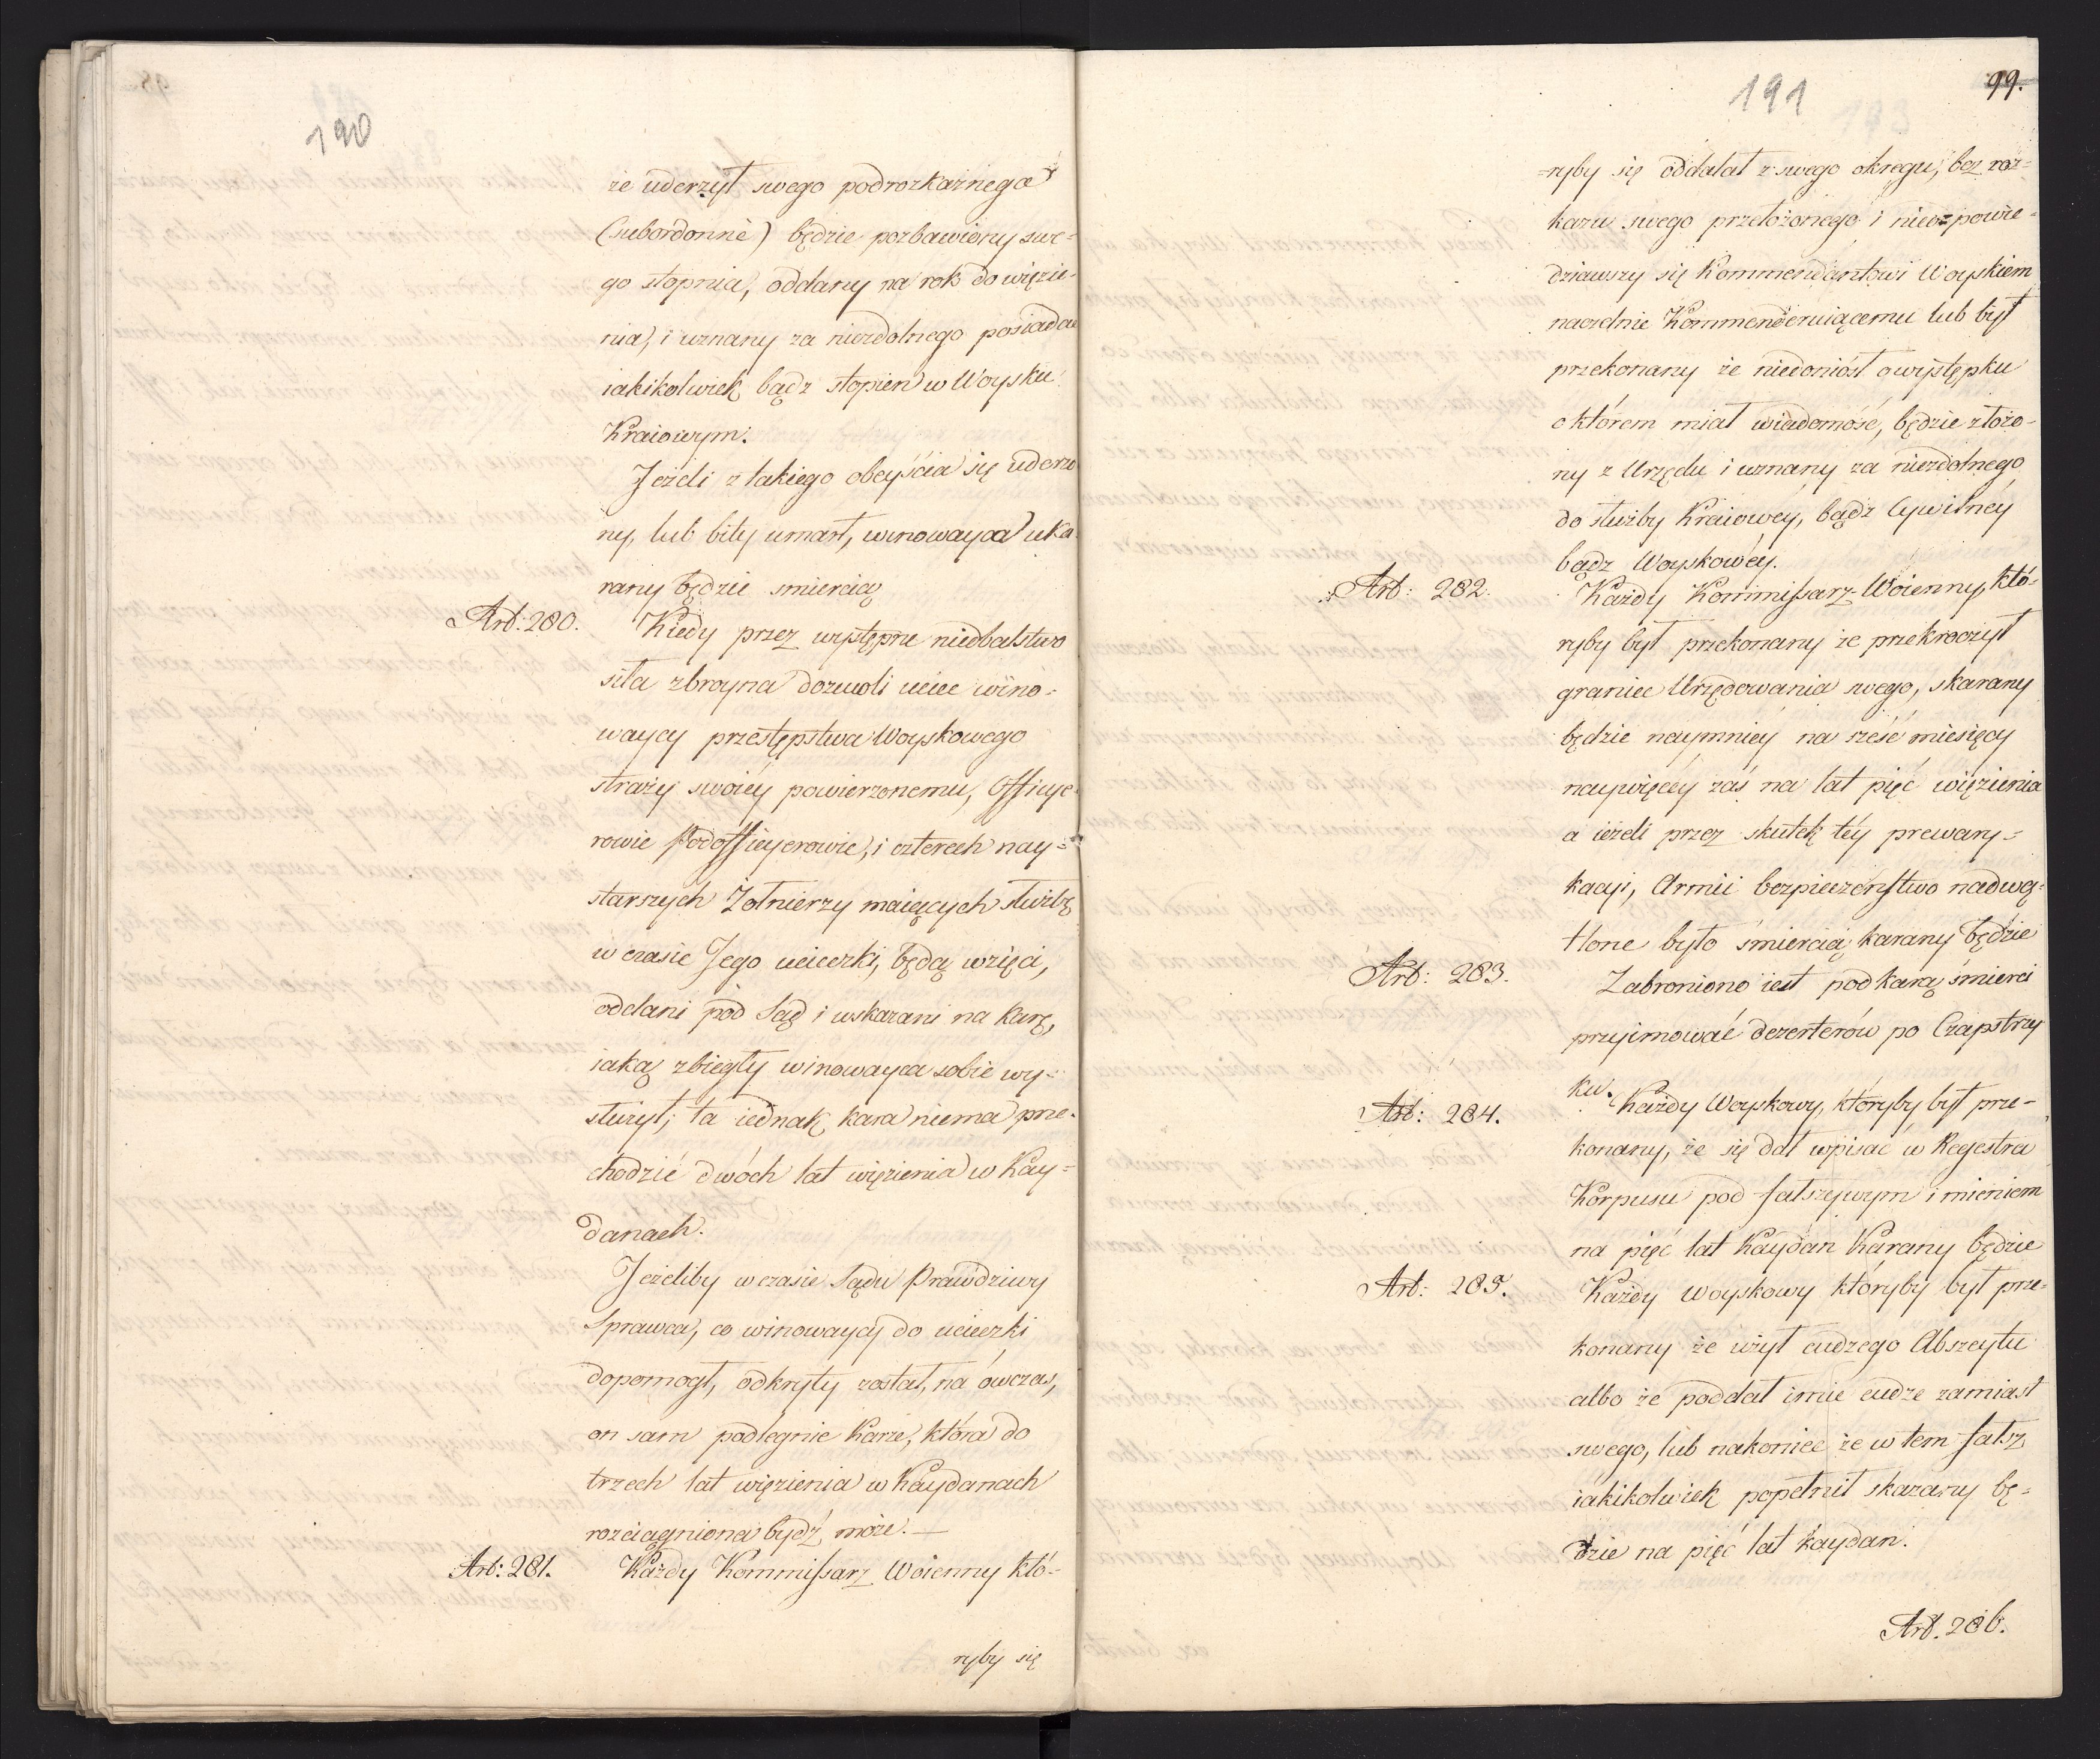 190
że uderzył swego podrozkaznego
(subordonné) będzie pozbawiony swe=
go stopnia, oddany na rok do więzie-
nia, i uznany za niezdolnego posiadae
iakikolwiek bądz stopień w Woysku
Kraiowym.
Jeżeli z takiego obeyścia się uderzo
ny, lub bity umarł, winowayca uka
rany będzie smiercią
Art: 280. Kiedy przez występne niedbalstwo
siła zbroyna dozwoli uciec wino-
waycy przestępstwa Woyskowego
straży swoiéy powierzonemu, Officye
rowie Podofficyerowie, i czterech nay=
starszych Żołnierzy maiących służbę
w czasie Jego ucieczki, będą wzięci,
oddani pod Sąd i wskazani na karę,
iaką zbiegły winowayca sobie wy=
służył; ta iednak kara niema prze-
chodzić dwóch lat więzienia w Kay=
danach.
Jeżeliby w czasie Sądu Prawdziwy
Sprawca, co winowaycy do ucieczki
dopomogł, odkryty został, na ówczas,
on sam podlegnie Karze, która do
trzech lat więzienia w Kaydanach
rozciągniona bydź może. —
Art: 281. Każdy Kommissarz Woienny któ-
ryby się
191
99.
=ryby się oddalał z swego okregu, bez roz=
kazu swego przełożonego i nieozpowie-
dziawszy się Kommendantowi Woyskiem
naczelnie Kommenderuiącemu lub był
przekonany że niedoniósł o występku
o którem miał wiadomość, będzie złożo-
ny z Urzędu i uznany za niezdolnego
do służby Kraiowéy, bądz Cywilnéy
bądz Woyskowéy.
Art: 282. Każdy Kommissarz-Woienny, któ-
ryby był przekonany że przekroczył
granice Urzędowania swego, skarany
będzie naymniéy na sześć miesięcy
naywięcéy zaś na lat pięć więzienia
a ieżeli przez skutek téy prewary=
kacyi, Armii bezpieczeństwo nadwą-
tlone było śmiercią karany będzie
Art: 283. Zabroniono iest pod karą śmierci
przyimować dezerterów po Czapstrzy
ku.
Art: 284. Każdy Woyskowy, któryby był prze-
konany, że się dał wpisać w Regestra
Korpusu pod fałszywym imieniem
na pięć lat Kaydan Karany będzie
Art: 285. Każdy Woyskowy któryby był prze-
konany że użył cudzego Abszeytu
albo że poddał imie cudze zamiast
swego, lub nakoniec że w tem fałsz
iakikolwiek popełnił skazany bę=
dzie na pięć lat kaydan.
Art. 286.